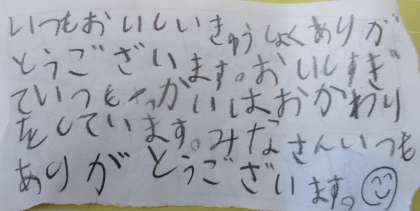 いつもおいしいきゅうしょくありが
とうございます。おいしすぎ
ていつも一かいはおかわり
をしています。みなさんいつも
ありがとうございます。